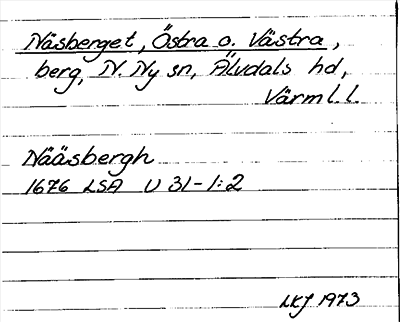 Näsberget, Östra o. Västra,
berg, N. Ny sn, Älvdals hd,
Värml. l.
Nääsbergh
1676 LSA U 31-1:2
LKJ 1973